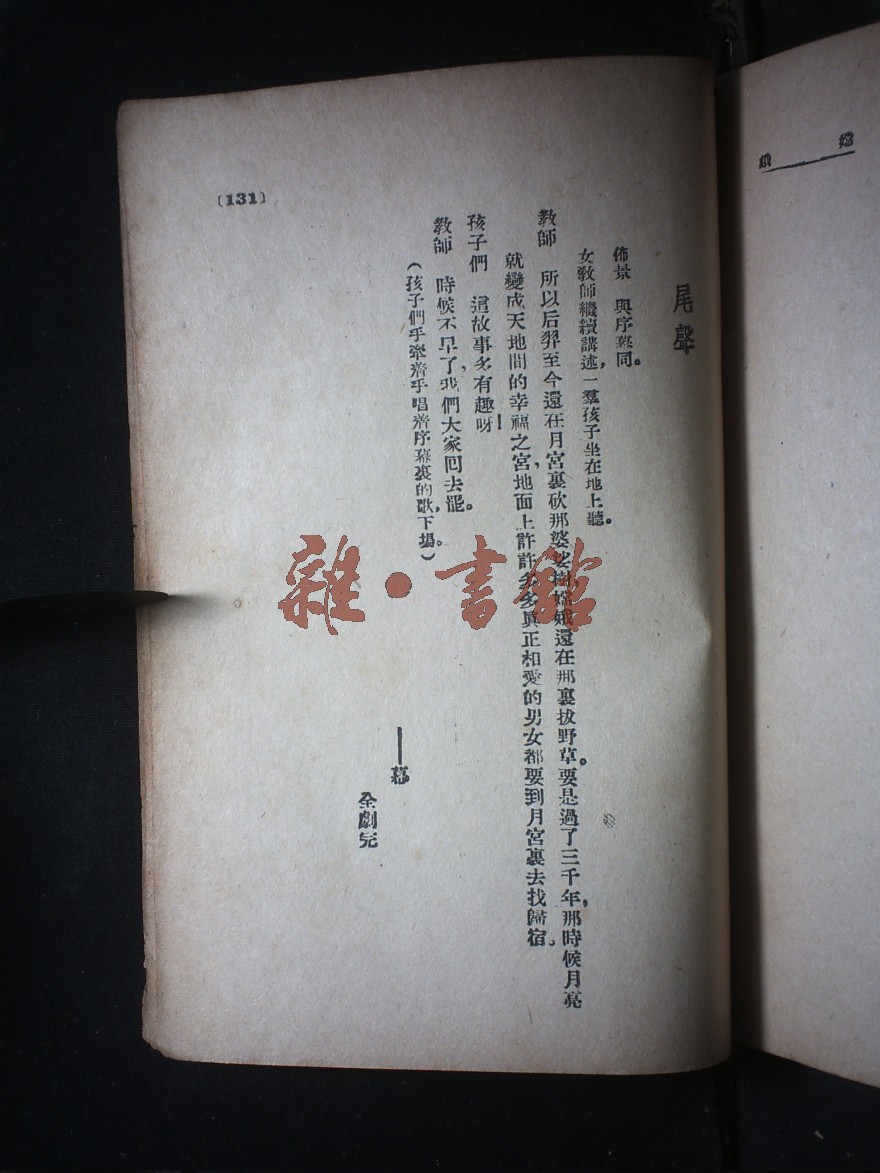 尾聲
佈景　與序幕同。
女教師繼續講述，一羣孩子坐在地上聽。
教師　所以后羿至今還在月宮裏砍那婆娑樹，嫦娥還在那裏拔野草。要是過了三千年，那時候月亮
就變成天地間的幸福之宮，地面上許許多多眞正相愛的男女都要到月宮裏去找歸宿。
孩子們　這故事多有趣呀！
教師　時候不早了，我們大家回去罷。
（孩子們手牽着手唱着序幕裏的歌，下場。）
——幕
全劇完
(131)
雜·書館